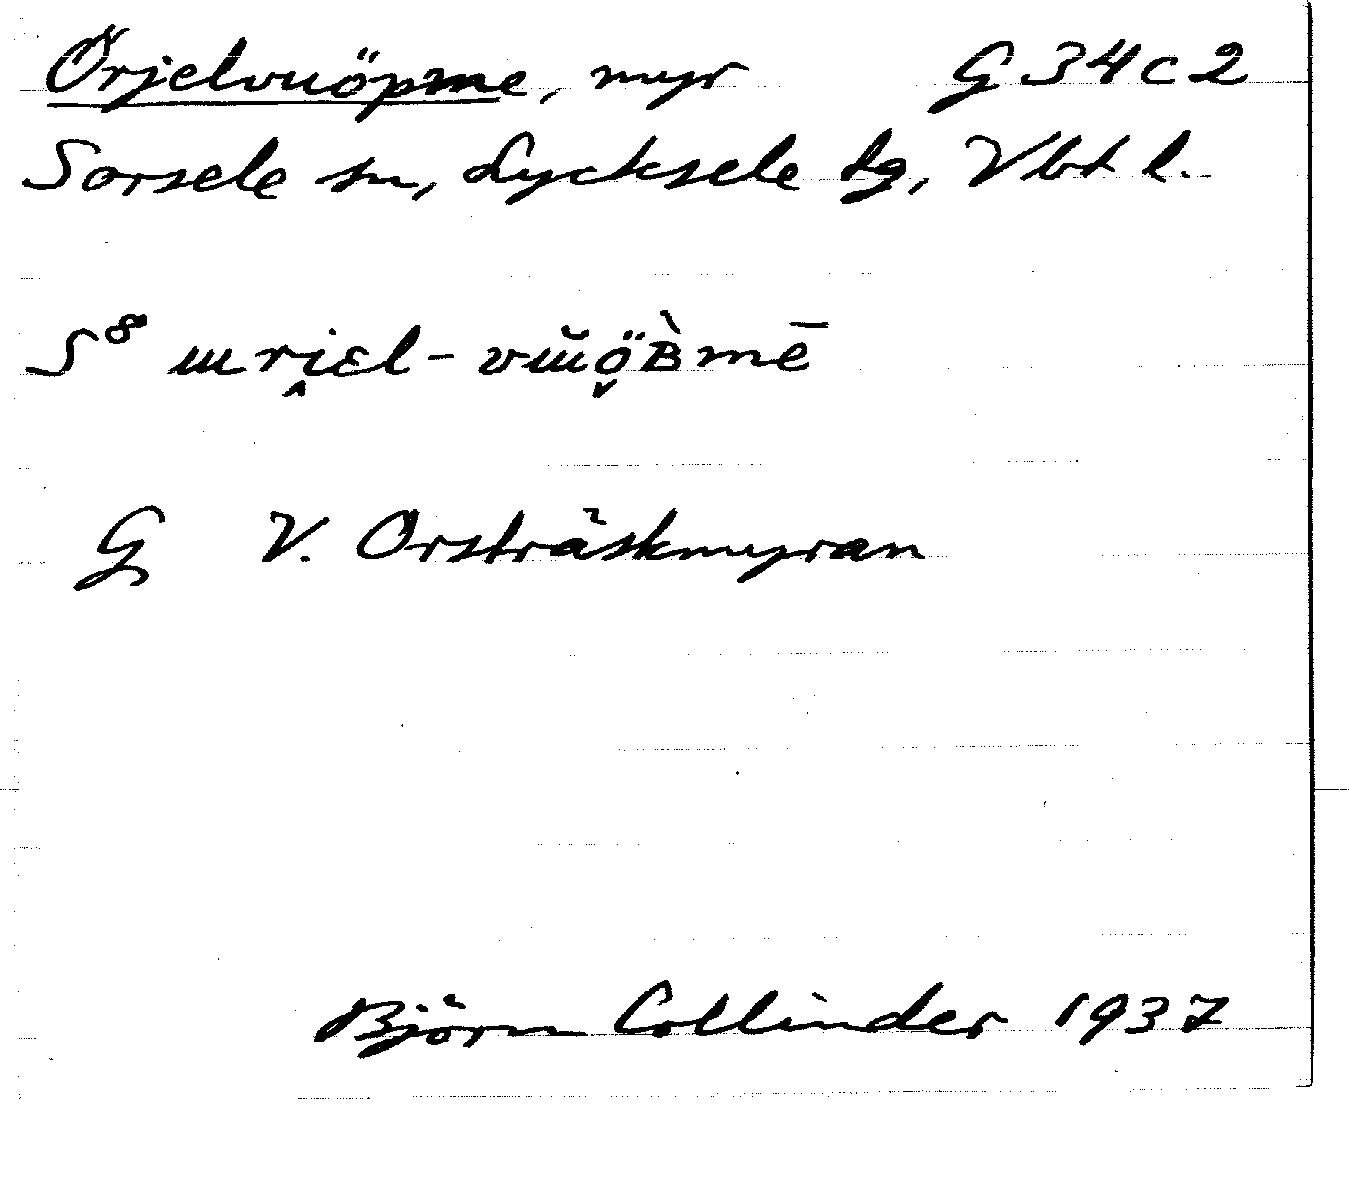 Örjelvuöpme, myr G 34 c 2
Sorsele sn, Lycksele lg, Vbt l.
S⁸ ɯri̭ɛl-vɯ̆ö̬B̀mē
G V. Orsträskmyran
Björn Collinder 1937